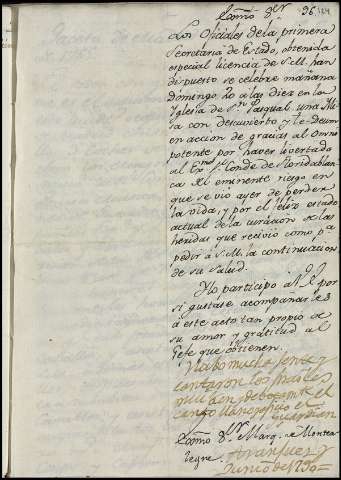 Exmo Sr. 36
Los Oficiales de la primera
Secretaria de Estado, obtenida
especial licencia de S.M. han
dispuesto se celebre mañana
domingo 20 a las diez en la
Iglesia de Sn. Pasqual una Mi
sa con descubierto y te-deum
en accion de gracias al omni
potente por haver livertado
al Exmo. Sr. Conde de Floridablan
ca del eminente riesgo en
que se vio ayer de perder
la vida, y por el feliz estado
actual de la curacion de las
heridas que recivio como pa.
pedir a S.M. la continuacion
de su Salud.
Y lo participo a V.E. por
si gustase acompañarles
a este acto tan propio de
su amor y gratitud al
Gefe que obtienen.
y cantaron los frailes
el
canto llano
Exmo Sr. Marq. de Montea
legre.
Aranjuez
Junio de 1790